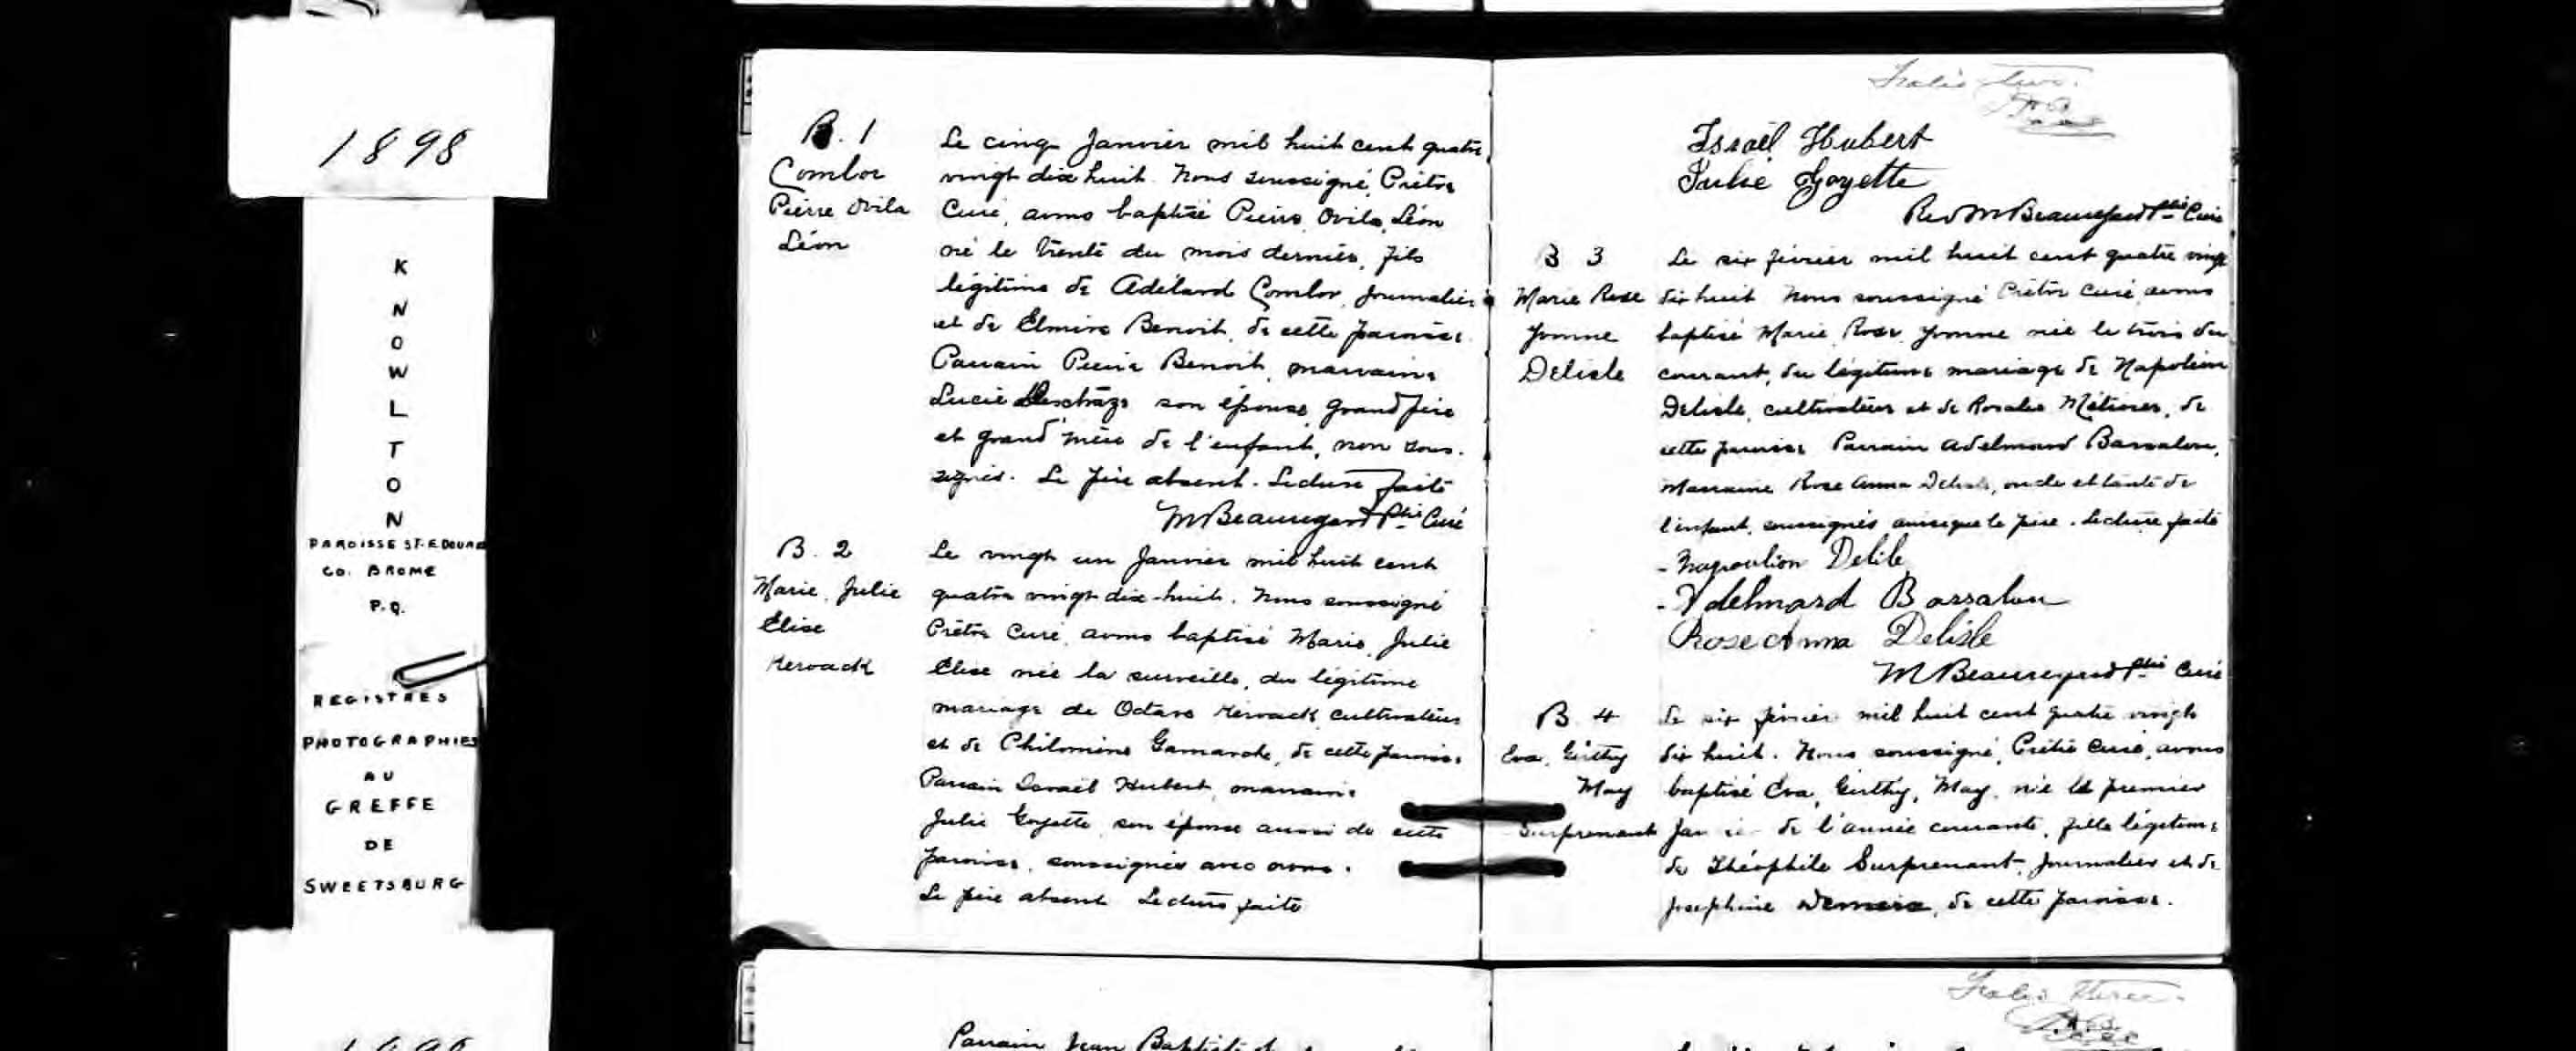 1898
KNOWLTON
PAROISSE ST. EDOUARD
CO. BROME
P.Q.
REGISTRES
PHOTOGRAPHIES
AU
GREFFE
DE
SWEETSBURG
B. 1
Comlor
Pierre Ovila
Léon
Le cinq Janvier mil huit cent quatre
vingt dix huit. Nous soussigné, Prêtre
Curé, avons baptisé Pierre, Ovila, Léon
né le trente du mois dernier, fils
légitime de Adélard Comlor, journalier
et de Elmire Benoit, de cette paroisse.
Parrain Pierre Benoit, marraine
Lucie son épouse, grand père
et grand'mère de l'enfant, non sous-
signés. Le père absent. Lecture faite
M Beauregard Ptre Curé
B. 2
Marie, Julie
Elise
Kerouack
Le vingt un Janvier mil huit cent
quatre vingt dix-huit. Nous soussigné
Prêtre Curé, avons baptisé Marie, Julie
Elise née la surveille, du légitime
mariage de Octave Kerouack cultivateur
et de Philomène Gamache, de cette paroisse
Parrain Israël Hubert, marraine
Julie Goyette son épouse aussi de cette
paroisse, soussignés avec nous.
Le père absent Lecture faite
Folio two.
Israël Hubert
Julie Goyette
Rev M Beauregard Ptre Curé
B 3
Marie Rose
Yvonne
Delisle
Le six février mil huit cent quatre vingt
dix huit Nous soussigné Prêtre Curé, avons
baptisé Marie, Rose, Yvonne née le trois du
courant, du légitime mariage de Napoléon
Delisle, cultivateur et de Rosalie Métivier, de
cette paroisse Parrain Adelmard Barsalou,
Marraine Rose Anna Delisle, oncle et tante de
l'enfant, soussignés ainsi que le père. Lecture faite
- Napoolion Delile
- Adelmard Barsalou
Rose Anna Delisle
M Beauregard Ptre Curé
B. 4
Eva, Girthy
May
Surprenant
Le six février mil huit cent quatre vingt
dix huit. Nous soussigné, Prêtre Curé, avons
baptisé Eva, Girthy, May, née le premier
de l'année courante, fille légitime
de Théophile Surprenant, journalier et de
Josephine Demers, de cette paroisse.
Parrain Jean Baptiste
Folio three.